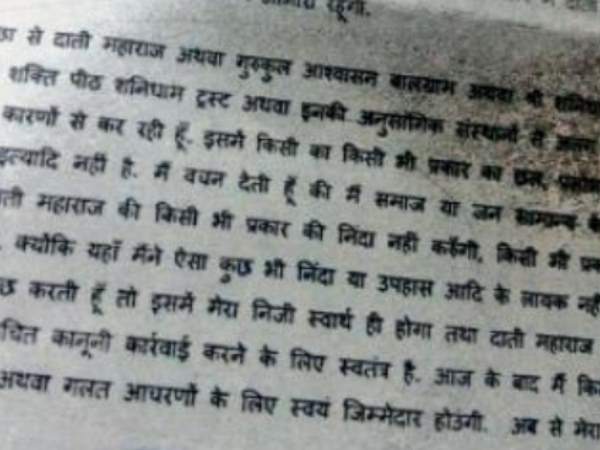 रहूंगी.
से दाती महाराज अथवा गुरुकुल आश्वासन बालग्राम अथवा श्री शनिधाम
शक्ति पीठ शनिधाम ट्रस्ट अथवा इनकी अनुसांगिक संस्थानों से
कारणों से कर रही हूँ. इसमें किसी का किसी भी प्रकार का छल,
इत्यादि नही है. मैं वचन देती हूँ की मैं समाज या जन सामान्य
महाराज की किसी भी प्रकार की निंदा नही करूँगी, किसी भी
क्योकि यहाँ मैंने ऐसा कुछ भी निंदा या उपहास आदि के लायक नही
करती हूँ तो इसमें मेरा निजी स्वार्थ ही होगा तथा दाती महाराज
चित कानूनी कार्रवाई करने के लिए स्वतंत्र है. आज के बाद मैं
अथवा गलत आचरणों के लिए स्वयं जिम्मेदार होउंगी. अब से मेरा